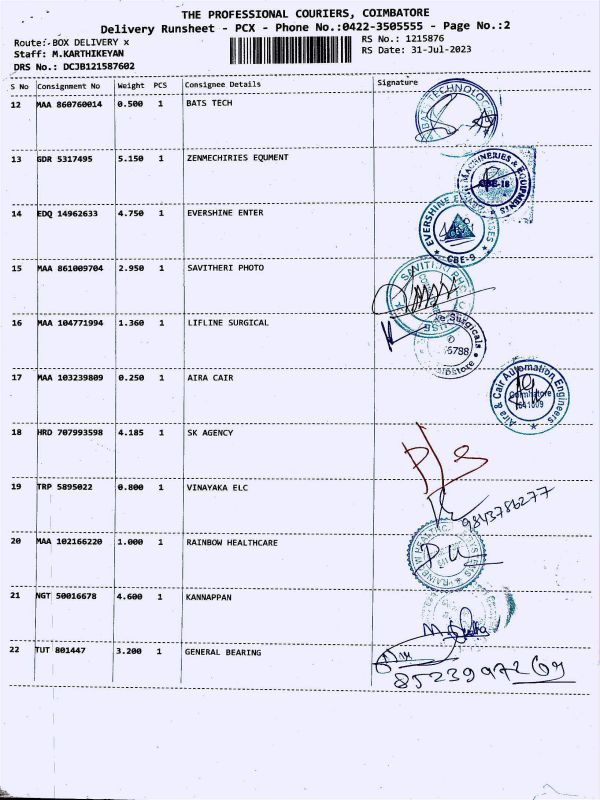 THE PROFESSIONAL COURIERS, COIMBATORE
Delivery Runsheet - PCX - Phone No.:0422-3505555 - Page No.:2
Route:-BOX DELIVERY x
RS No.: 1215876
Staff: M.KARTHIKEYAN
RS Date: 31-Jul-2023
DRS No.: DCJB121587602
S No Consignment No Weight PCS Consignee Details Signature
12 MAA 860760014 0.500 1 BATS TECH
BATS TECHNOLOGIES
13 GDR 5317495 5.150 1 ZENMECHIRIES EQUMENT
MACHINERIES & EQUIPMENTS
CBE-18
14 EDQ 14962633 4.750 1 EVERSHINE ENTER
EVERSHINE
CBE-9
15 MAA 861009704 2.950 1 SAVITHERI PHOTO
16 MAA 104771994 1.360 1 LIFLINE SURGICAL
Surgicals
17 MAA 103239809 0.250 1 AIRA CAIR
Aira & Cair Automation Engineers
Coimbatore
641009
18 HRD 707993598 4.185 1 SK AGENCY
19 TRP 5895022 0.800 1 VINAYAKA ELC
9843786277
20 MAA 102166220 1.000 1 RAINBOW HEALTHCARE
21 NGT 50016678 4.600 1 KANNAPPAN
22 TUT 801447 3.200 1 GENERAL BEARING